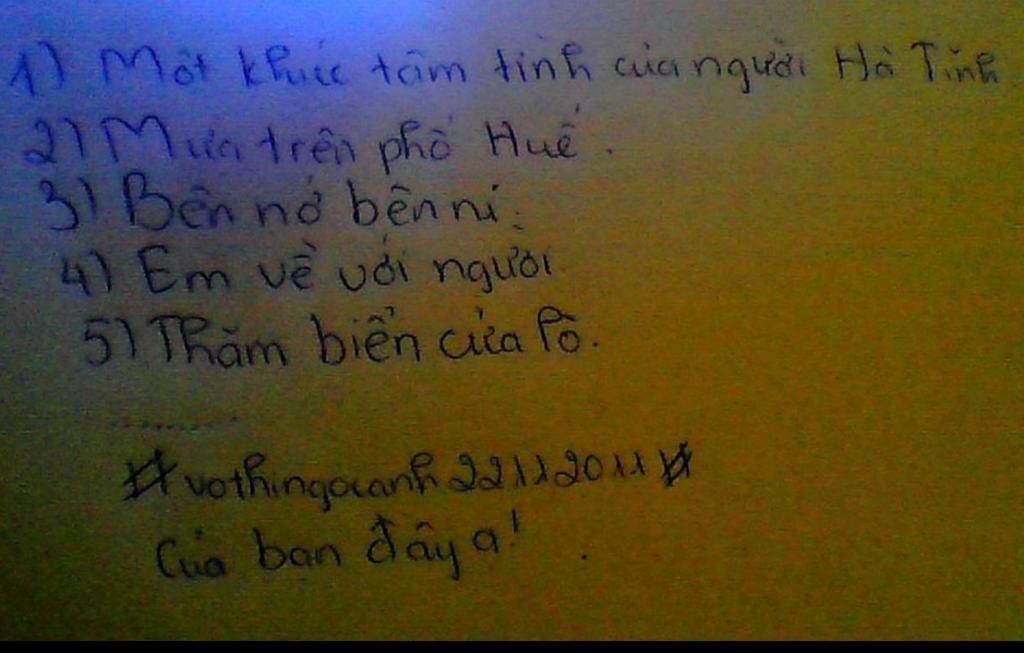 1) Một khúc tâm tình của người Hà Tĩnh
2) Mưa trên phố Huế.
3) Bên nớ bên ni.
4) Em về với người
5) Thăm biển cửa lò.
..........
# vothingocanh22112011 #
Của bạn đây ạ!